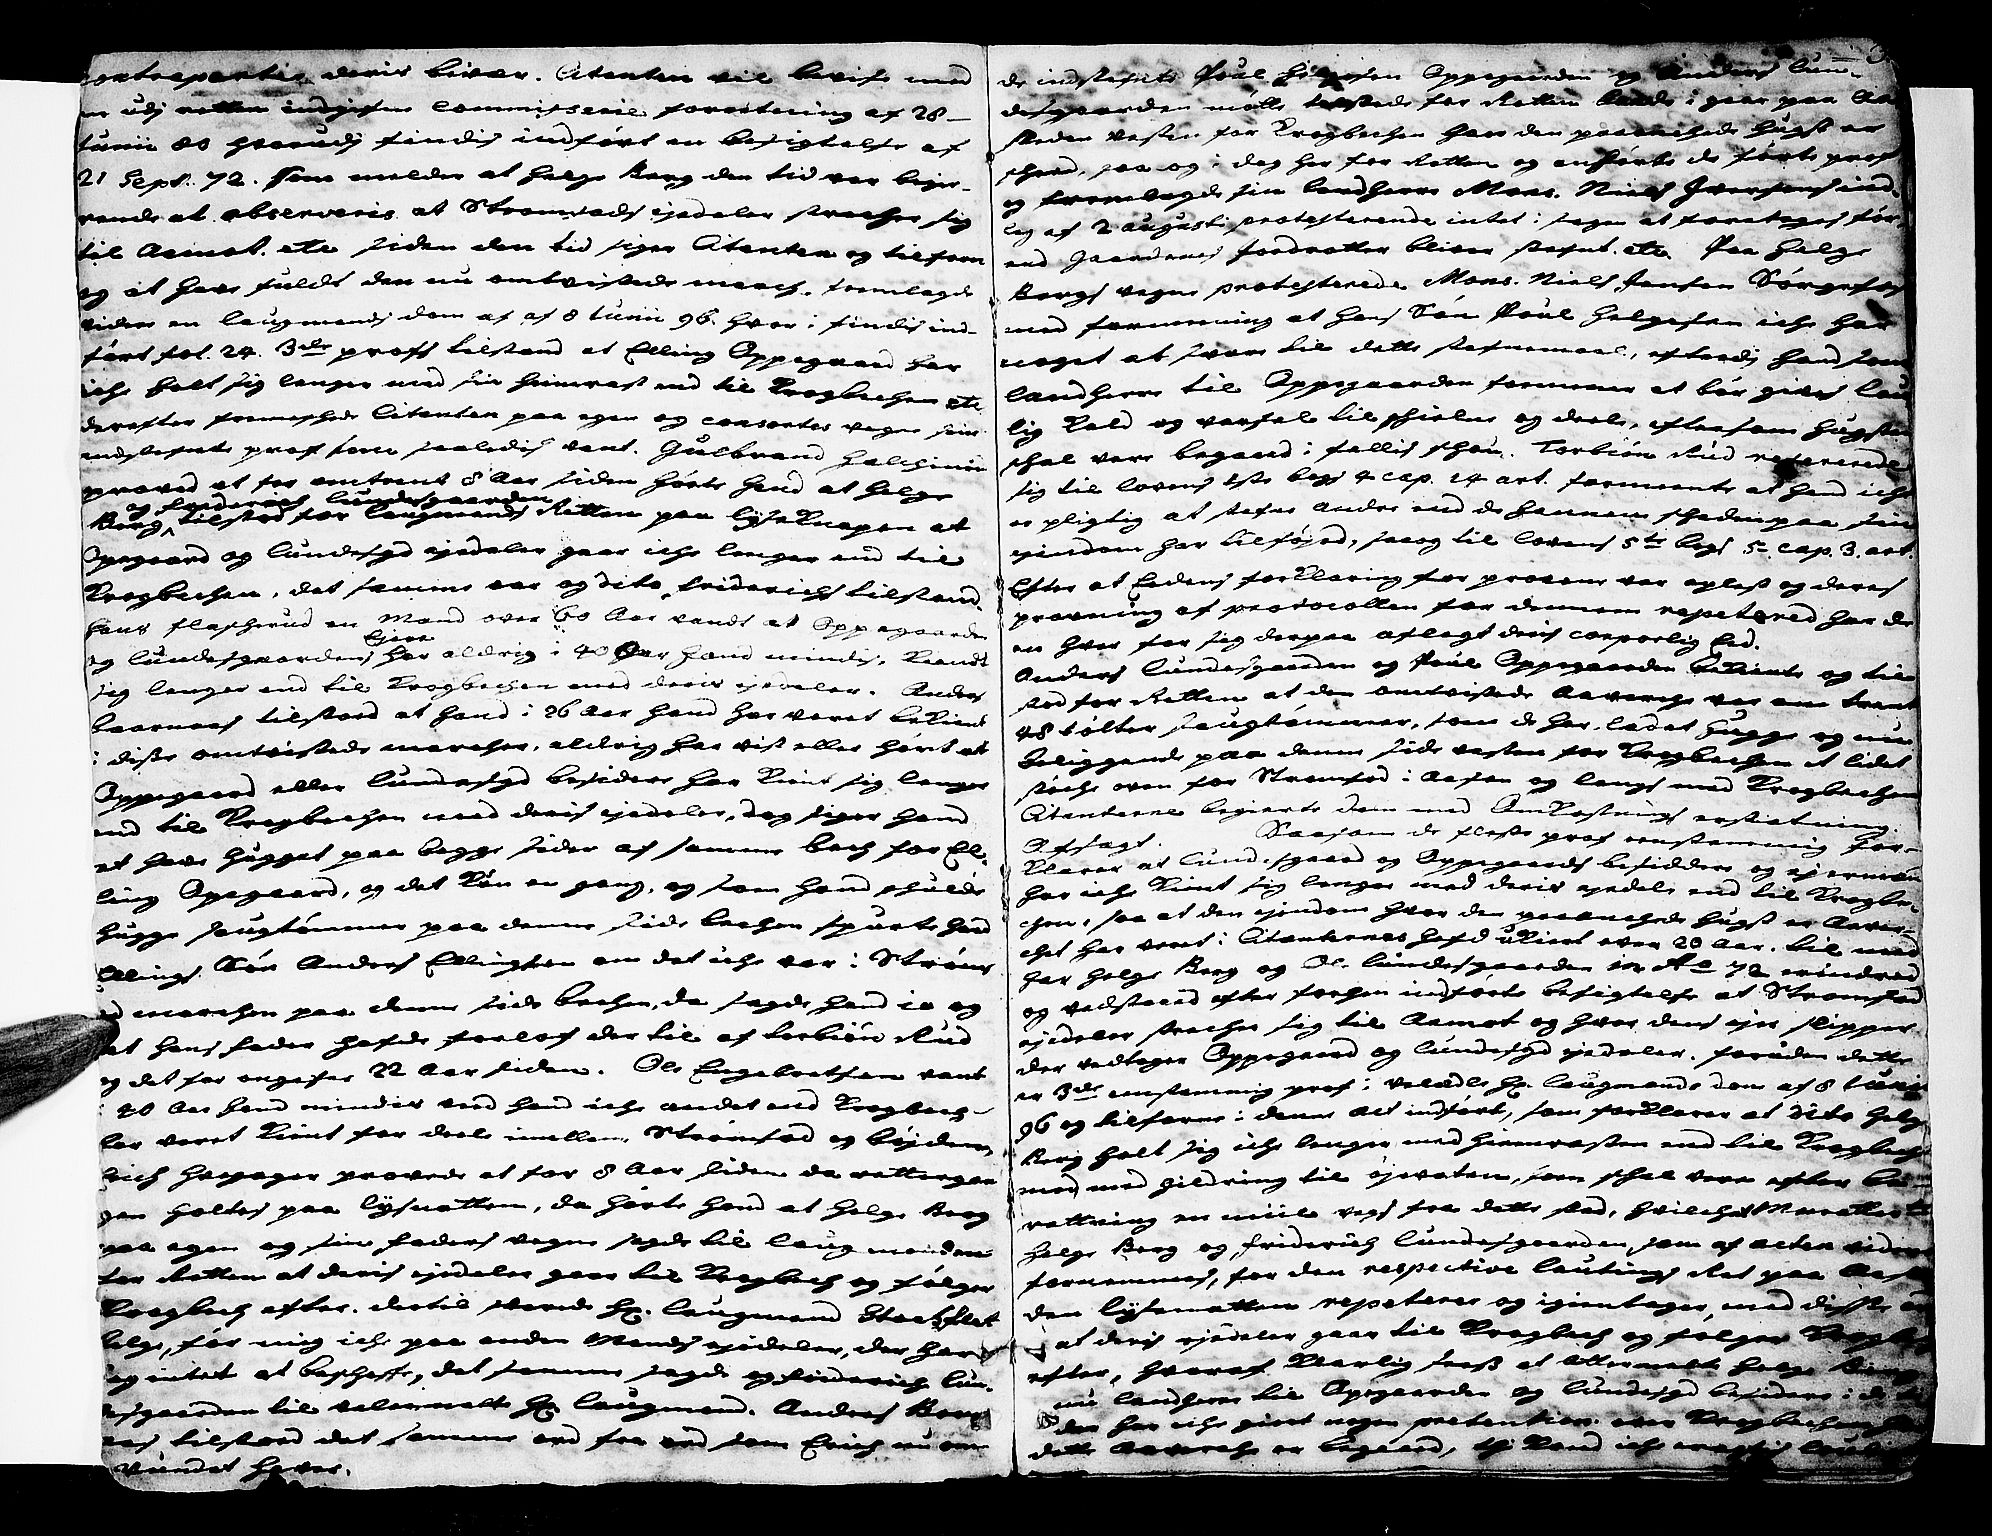 contrapartie deris bivær. Citanten vil bevise med
en udj retten indgifven Commisserie forretning af 28
Junii 80 hvorudj findis indført en besigtelse af
21 Sept. 72. som melder at Helge Berg den tid var begie-
rende at observeris at Strømsøds ejedeler strecher sig
til Aamot. etc siden den tid siger Citanten og tilforn
og at have fuldt den nu omtvistede march. fremlagde
viden en laugmands dom af af 8 Junii 96. hvor i findis ind-
ført fol. 24. 3de prof tilstand at Elling Oppegaard har
iche holt sig lenger med sin himrast end til Krogbechen etc
derefter fremeschede Citanten paa egen og consortes vegne sine
indstefnte prof som saaledis vant. Gulbrand Halchinrud
provede at for omtrent 8 Aar siden hørte hand at Helge
og Frederich Lundesgaarden
Berg tilstod for laugmands Retten paa Lyseknapen at
Opegaard og Lundesgd ejedeler gaar iche lenger end til
Krogbechen, det samme var og dito Friderichs tilstand.
Hans Flascherud en Mand over 60 Aar vandt at Oppegaarden
Ejere
og Lundesgaardens har aldrig i 40 Aar hand mindis, kiendt
sig lenger end til Krogbechen med deris ejedeler. Anders
Baarnaas tilstod at hand i 26 Aar hand har veret bekient
i disse omtvistede marcher, aldrig har vist eller hørt at
Oppegaard eller Lundesgd besidere har kient sig lenger
end til Krogbechen med deris ejedeler, dog siger hand
at have hugget paa begge sider af samme bech for El-
ling Opegaard, og det kun en gang, og som hand schulde
hugge saugtømmer paa denne side bechen spurte hand
Ellings Søn Anders Ellingsen om det iche var i Strøms
ød marchen paa denne side bechen, da sagde hand io og
at hans fader hafde forlof der til af Torbiøn Rud
og det for ongefer 22 Aar siden. Ole Engebretsen vant
i 40 Aar hand mindis ved hand iche andet end Krogbech
ler veret kient for deele imellem Strømsød og bøjden,
Erich Hvepager provede at for 8 Aar siden da rettergan
gen holtes paa Lysnatten, da hørte hand at Helge Berg
paa egen og sin faders vegne sagde til laugmanden
for Retten at deris ejedeler gaar til Krogbech og følger
Krogbech efter. dertil svarede Hr. laugmand Stochflet
Helge, før mig iche paa anden Mands ejedeler, der har
ieg intet at beschaffe, det samme sagde og Friderich Lun-
desgaarden til velermelte Hr. laugmand. Anders Baar
naas tilstod det samme ord fra ord som Erich nu om
vundet hafver.
de indstefnte Poul Helgesen Oppegaarden og Anders Lun-
desgaarden møtte tilstede for Retten baade i gaar paa Aa
steden vesten for Krogbechen hvor den paaanchede hugst er
scheed, saa og i dag her for Retten og anhørte de førte prof
og fremlagde sin landherre Mons. Niels Iversens ind-
leg af 2 augusti protesterende intet i sagen at foretages før
end Gaardenes fordrotter bliver stefnt. etc. Paa Helge
Bergs vegne protesterede Mons. Niels Jensen Sørgefos
med formening at hans Søn Poul Helgesen iche har
noget at svare til dette stefnemaal, efterdj hand som
landherre til Oppegaarden formener at bør gives lou
lig Kald og varsel til schielne og deele, eftersom hugsten
schal vere begaaed i fellis schou. Torbiøn Rud refererede
sig til lovens 1ste bogs 4 cap. 14 art. formeente at hand iche
er pligtig at stefne andre end de hannem schaden paa sin
eiendom har tilføjed, saa og til lovens 5te bogs 5 cap. 3 art.
Efter at Eedens forklaring for provene var oplest og deres
provning af protocollen for dennem repetered har de
en hver for sig derpaa aflagt deris corporlig Eed.
Anders Lundesgaarden og Poul Oppegaarden bekiente og til
stod for Retten at den omtvistede Aaverche var om trent
48 tolter saugtømmer, som de har ladet hugge og nu
beliggende paa denne side vesten for Krogbechen et lidet
støche oven for Strømsød i Aasen og langs med Krogbechen
Citanterne begierte dom med Omkostnings erstatning.
Afsagt. Saasom de fleste prof eenstemmig for-
klarer at Lundesgaard og Oppegaards besiddere og ejermen
har iche kient sig lenger med deris ejedele end til Krogbe-
chen, saa at den ejendom hvor den paaanchede hugst er aaver-
chet har veret i Citanternes hefd ukiert over 20 Aar. til med
har Helge Berg og Ole Lundesgaarden in Ao 72 erindred
og vedstaaed efter forhen indførte besigtelse at Strømsød
ejedeler strecher sig til Aamot og hvor dens eje slipper
der vedtager Oppegaard og Lundesgd ejedeler. foruden dette
er 3de eenstemmig prof i velædle Hr. laugmands dom af 8 Junij
96 og tilforne i denne Act indført, som forklarer at dito Helge
Berg holt sig iche lenger med himrasten end til Krogbech
med med gildring til Ejevaten, som schal vere efter be-
retning en miil vejs fra dette sted, hvilchet Meerbemelte
Helge Berg og Friderich Lundesgaarden, som af acten videre
fornemmes, for den respective lautings Ret paa Aaste
den Lysenatten repeterer og igientager, med disse ord
at deris ejedeler gaar til Krogbech og følger Krogbech
efter, hvoraf klarlig sees at bemelte Helge Berg
nu landherre til Opegaarden og Lundesgd besidere i de ti
der har iche giort nogen prætention over Krogbechen hvor
dette Aaverche er begaaed, thj kand iche eragtis lovlig